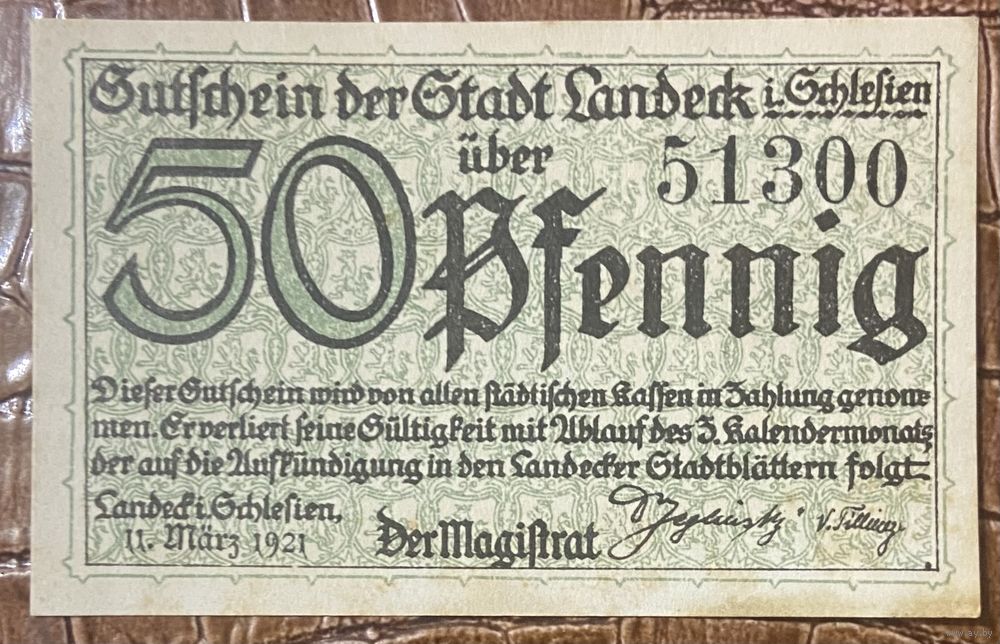 Gutschein der Stadt Landeck i. Schlesien
über
51300
50 Pfennig
Dieser Gutschein wird von allen städtischen Kassen in Zahlung genom-
men. Er verliert seine Gültigkeit mit Ablauf des 3. Kalendermonats,
der auf die Aufkündigung in den Landecker Stadtblättern folgt.
Landeck i. Schlesien,
11. März 1921
Der Magistrat
www.ay.by